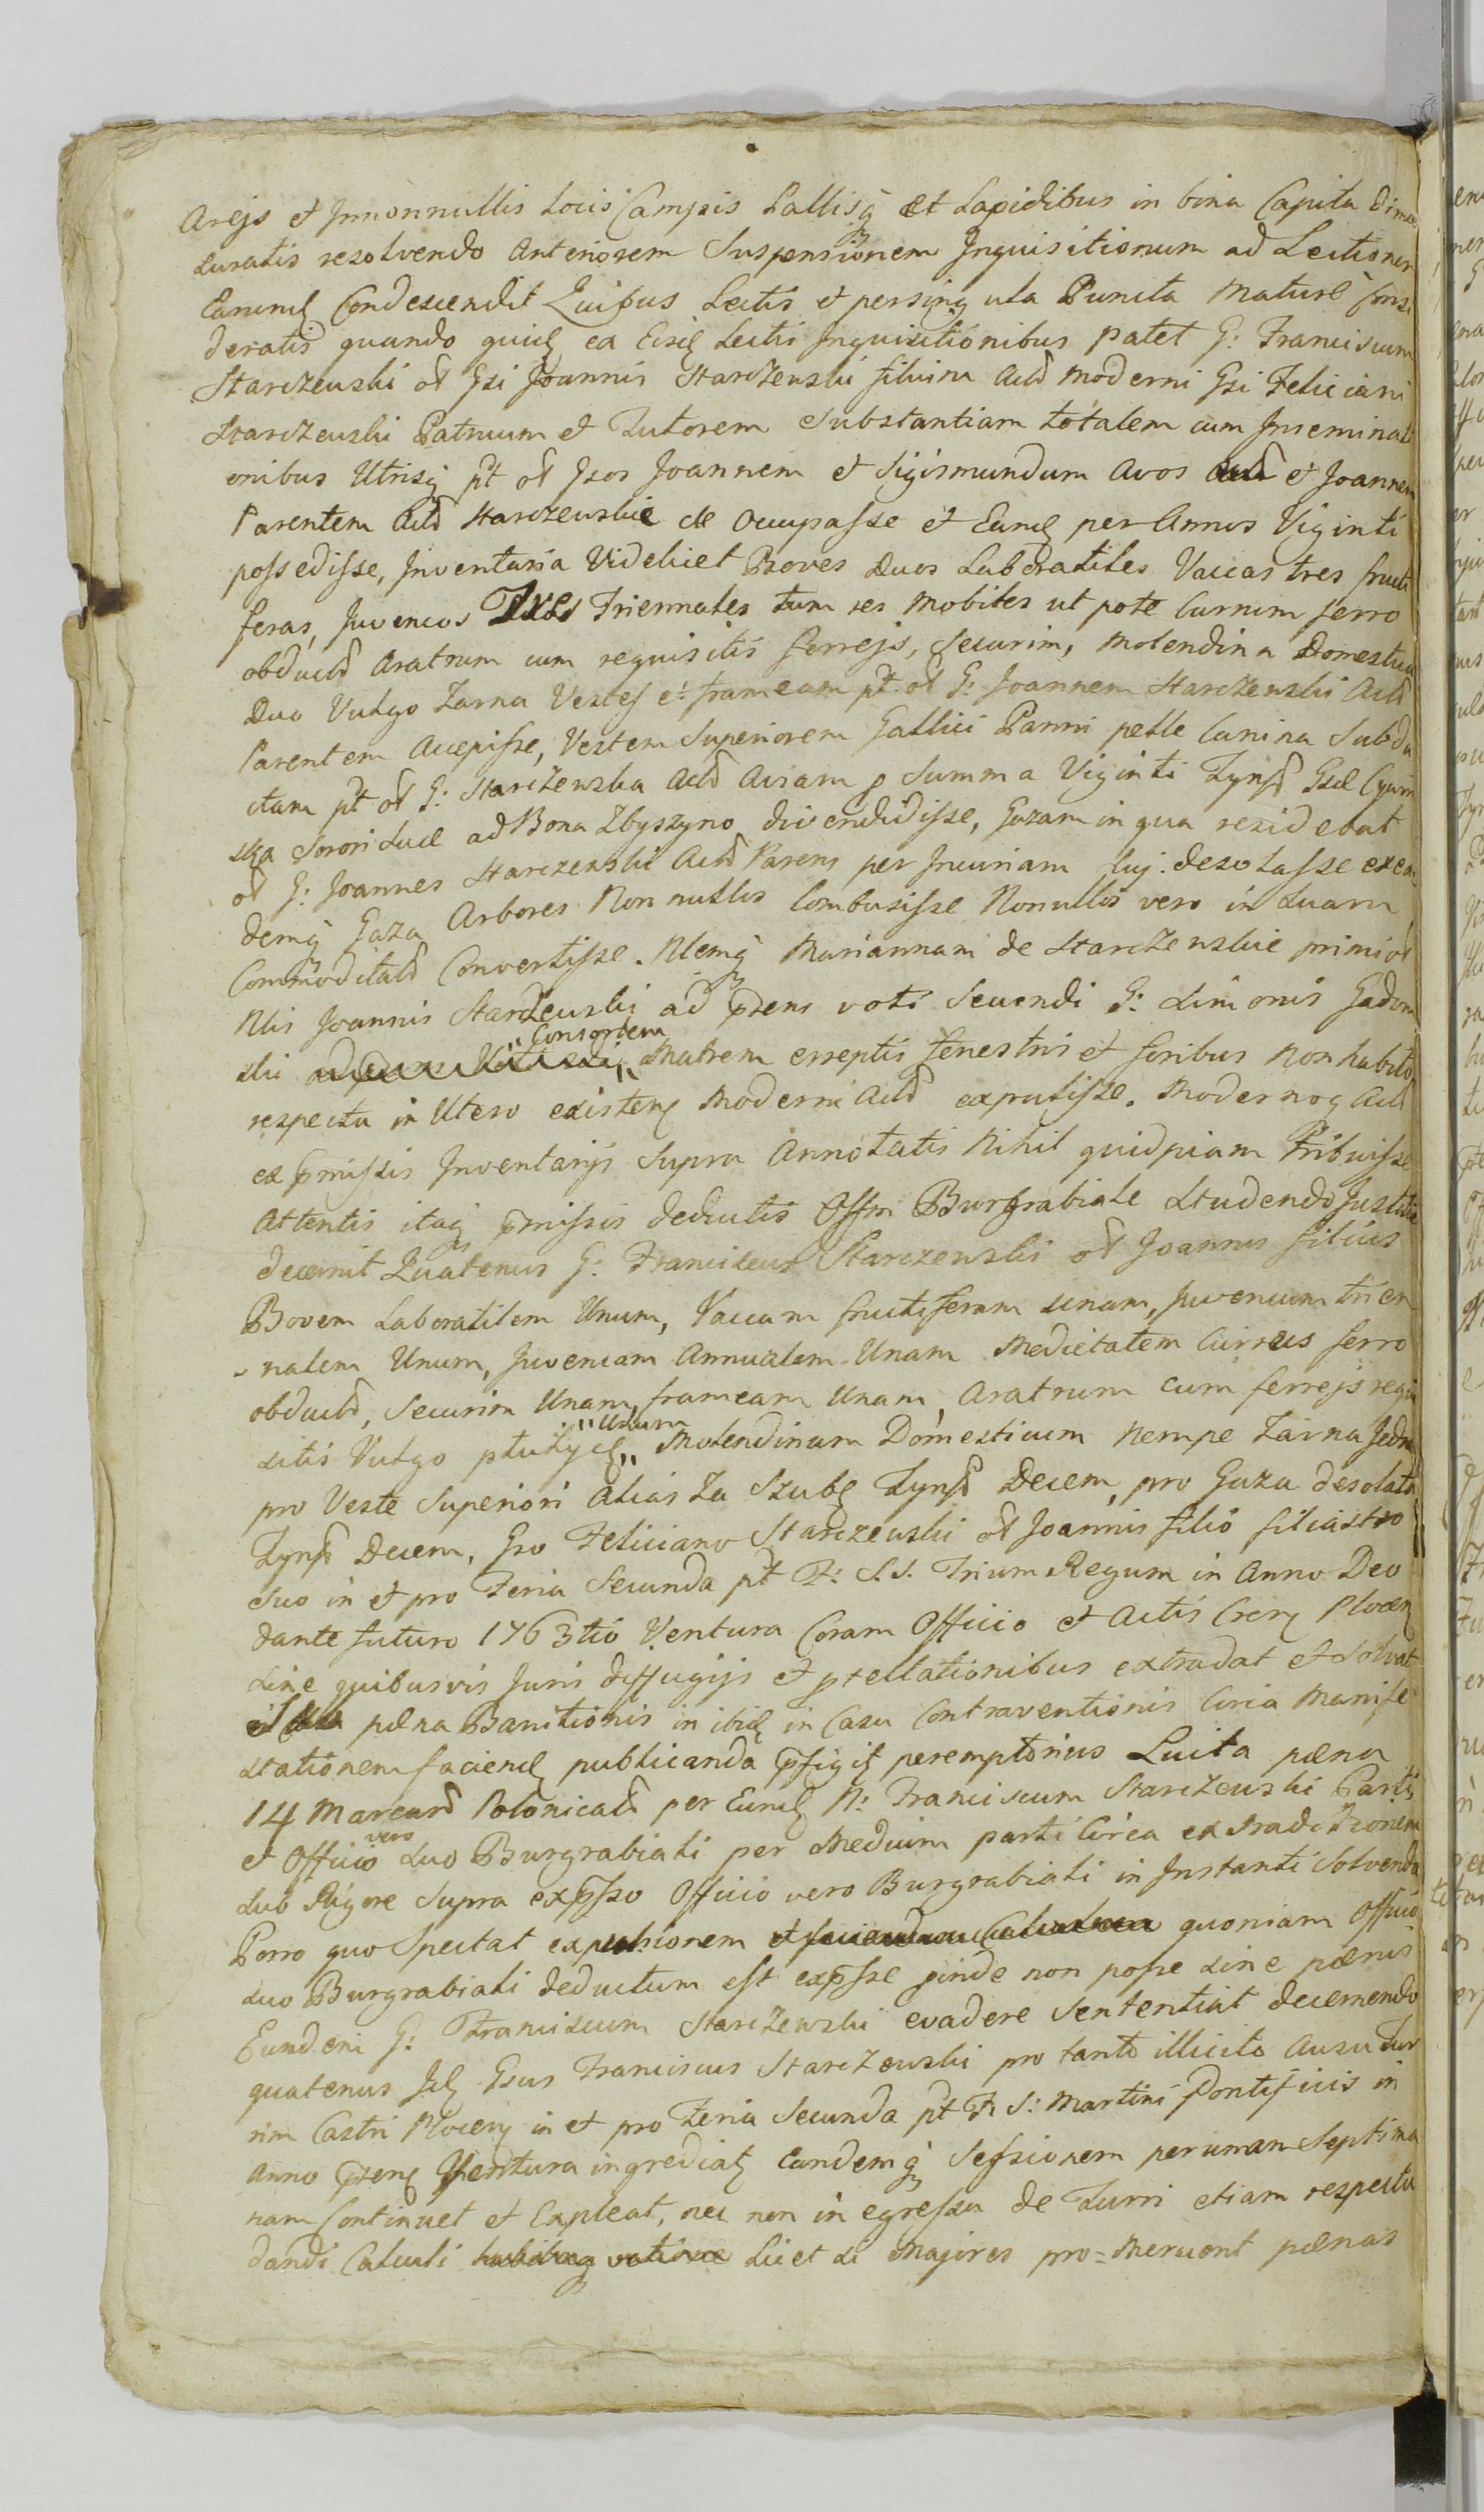 Arejs et Innonnullis Locis Campis Pallisq et Lapidibus in bina Capita Dimen
suratis resolvendo Anteriorem Suspensionem Inquisitionum ad Lectionem
Earund Condescendit Quibus Lectis et persingula Puncta Mature Consi
deratis quando quid ex Eisd Lectis Inquisitionibus patet G: Franciscum
Starczewski ol Gsi Joannis Starczewski filium Actd moderni Gsi Feliciani
Starczewski Patruum et Tutorem Substantiam totalem cum Inseminati
onibus Utrisq pt ol Gsos Joannem et Sigismundum Avos Actd et Joannem
Parentem Actd Starczewskie de Occupasse et Eand per Annos Viginti
possedisse, Inventaria Videlicet Boves Duos Laboratiles Vaccas tres fructi
feras, Juvencos Tres Triennales tum res mobiles ut pote Currum ferro
obductd Aratrum cum requisitis ferrejs, Securim, Molendina Domestica
Duo Vulgo Zarna Vestes et frameam pt ol G: Joannem Starczewski Actd
Parentem Accepisse, Vestem Superiorem Gallici Panni pelle Canina Subdu
ctam pt ol G: Starczewska Actd Aviam p Summa Viginti Tynf Gsae
ska Sorori suae ad Bona Zbyszyno divendidisse, Gazam in qua residebat
ol G: Joannes Starczewski Actd Parens per Incuriam suj. desolasse exea
demq Gaza Arbores Nonnullos Combusisse Nonullos vero in suam
Commoditatd Convertisse. Nlemq Mariannam de Starczewskie primi ol
Nlis Joannis Starczewski ad prens voti Secundi G: Simonis Gadom
ski Consortem Matrem erreptis fenestris et foribus non habito
respectu in Utero existens Moderni Actd expulisse. Modernoq Actd
ex pmissis Inventarijs Supra Annotatis Nihil quidpiam Tribuisse
Attentis itaq pmissis deductis Offm Burgrabiale Studendo Justitiae
decernit Quatenus G: Franciscus Starczewski ol Joannis filius
Bovem Laboratilem Unum, Vaccam fructiferam unam, Juvencum trien
nalem Unum, Juvencam Annualem Unam Medietatem Currus ferro
obductd, Securim Unam, frameam Unam, Aratrum cum ferrejs requi
sitis Vulgo Unum Molendinum Domesticum Nempe Zarna Jedne
pro Veste Superiori alias Za Szubę Tynf Decem, pro Gaza desolata
Tynf Decem, Gso Feliciano Starczewski ol Joannis filio filiastro
suo in et pro Feria Secunda pt F: S.S. Trium Regum in Anno Deo
dante futuro 1763tio Ventura Coram Officio et Actis Cren Plocen
sine quibusvis Juris diffugijs et prellationibus extradat et solvat
paena Banitionis in ibid in Casu Contraventionis Circa Manife
stationem faciend publicanda pfigit peremptorius Luita paena
14 Marcard Polonicald per Eund N: Franciscum Starczewski Parti
et Officio vero suo Burgrabiali per Medium parti Circa extraditionem
sub Rigore Supra expsso Officio vero Burgrabiali in Instanti Solvenda
Porro quo Spectat expulsionem quoniam Officio
suo Burgrabiali deductum est expsse pinde non posse sine paenis
Eundem G: Franciscum Starczewski evadere Sententiat decernendo
quatenus Id Gsus Franciscus Starczewski pro tanto illicito Ausu Tur
rim Castri Plocen in et pro Feria Secunda pt F: S: Martini Pontificis in
Anno prens Ventura ingrediat Eandemq Sessionem per unam Septima
nam Continuet et Expleat, nec non in egressu de Turri etiam respectu
dandi Calculi Licet si Majores pro=meruent paenas